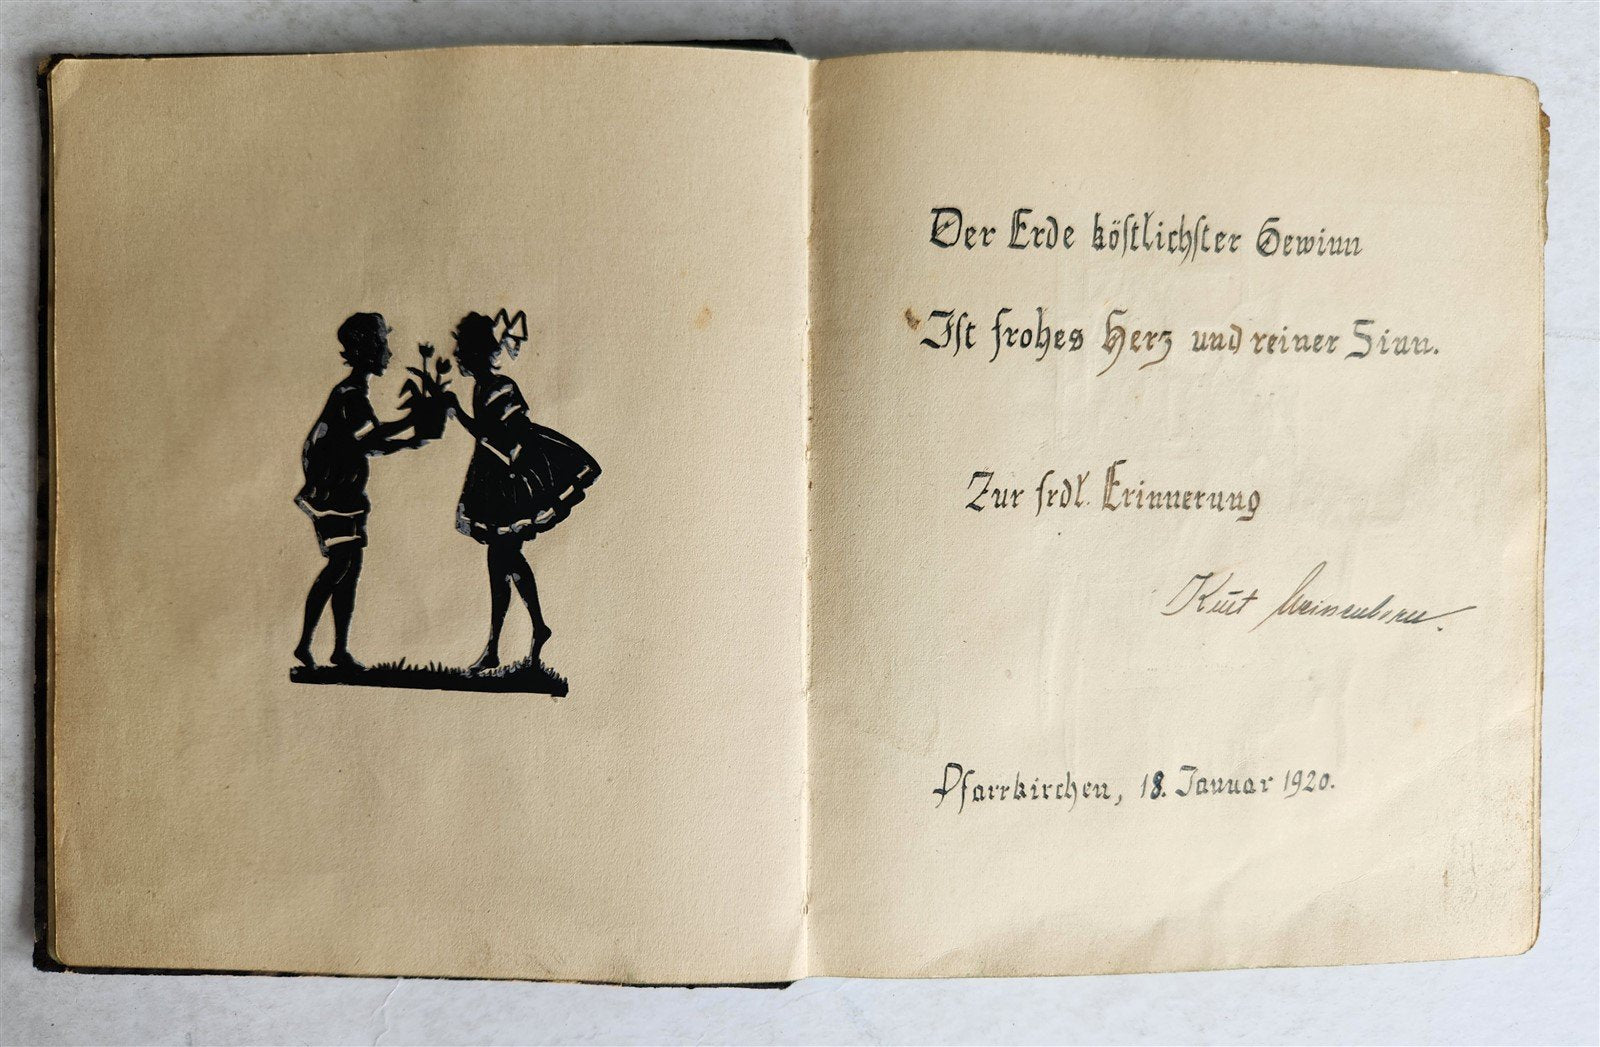 Der Erde köstlichster Gewinn
Ist frohes Herz und reiner Sinn.
Zur frdl. Erinnerung
Kurt
Pfarrkirchen, 18. Januar 1920.